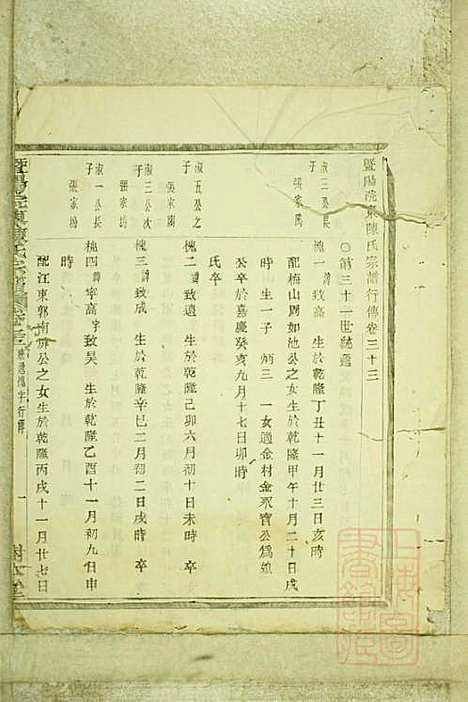 暨陽浣東陳氏宗譜行傳卷三十三
○第三十一世
淑三公長子
張家塢
槐一 諱致高 生於乾隆丁丑十一月廿三日亥時
配梧山周如池公女生於乾隆甲午十月二十日戌
時生一子 炳三 一女適金村金永寶公爲媳
公卒於嘉慶癸亥九月十七日卯時
氏卒
淑五公之子
張家塢
槐二 諱致遠 生於乾隆己卯六月初十日未時 卒
淑三公次子
張家塢
槐三 諱致成 生於乾隆辛巳二月初二日戌時 卒
淑一公長子
張家塢
槐四 諱寧高 字致昊 生於乾隆乙酉十一月初九日申
時
配江東郭南 公之女生於乾隆丙戌十一月廿七日
暨陽浣東陳氏宗譜 卷三十三
槐字行傳
一